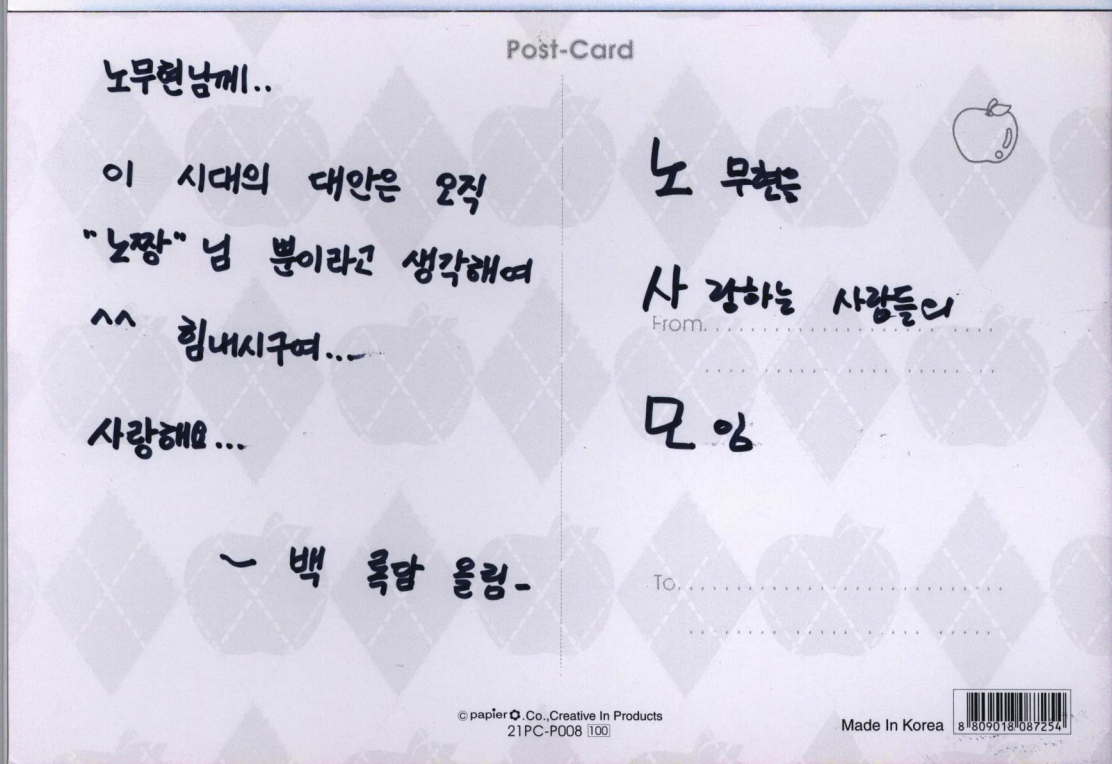 Post-Card
노무현님께..
이 시대의 대안은 오직
"노짱"님 뿐이라고 생각해여
^^ 힘내시구여...
사랑해요...
~ 백 록담 올림-
노 무현은
사 랑하는 사람들의
From
모 임
To
© papier .Co.,Creative In Products
21PC-P008 100
Made In Korea
8 809018 087254